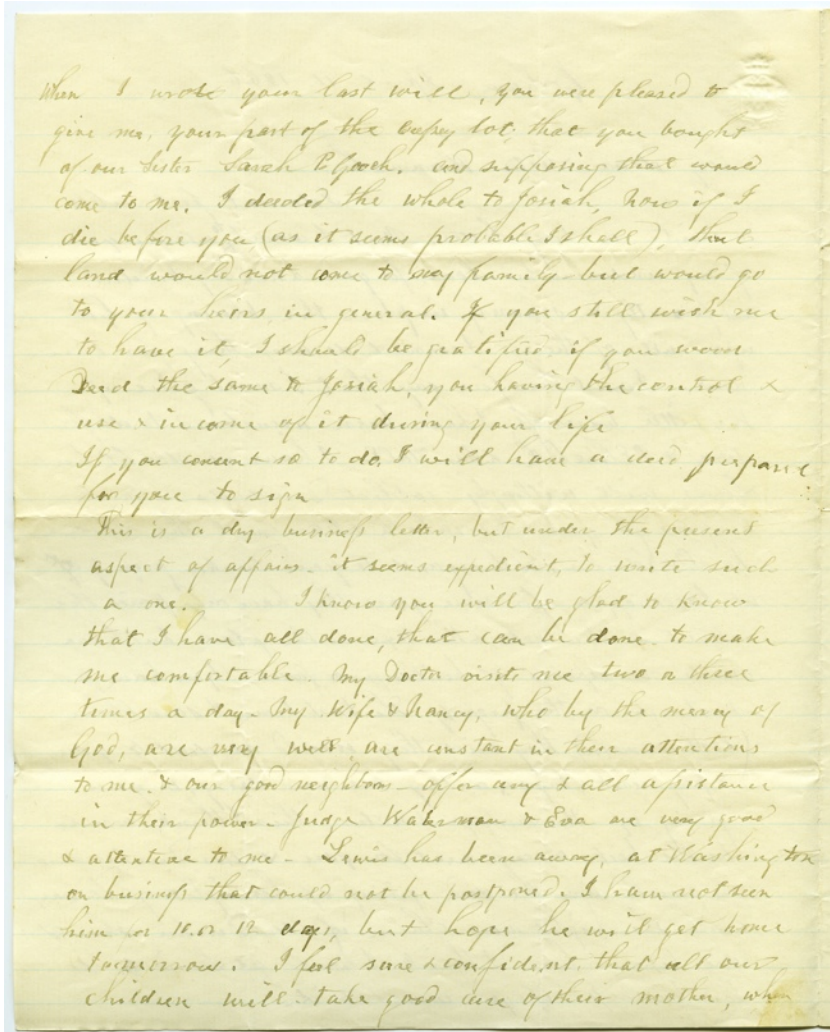 When I wrote your last will, you were pleased to
give me, your part of the lot, that you bought
of our Sister Sarah P. Gooch. and supposing that would
come to me. I deeded the whole to Josiah, now if I
die before you (as it seems probable I shall), that
land would not come to my family but would go
to your heirs in general. If you still wish me
to have it, I should be gratified, if you
Deed the same to Josiah, you having the control &
use & income of it during your life
If you consent so to do, I will have a deed
for you to sign
This is a dry business letter, but under the present
aspect of affairs. it seems expedient, to write such
a one. I know you will be glad to know
that I have all done, that can be done. to make
me comfortable. My Doctor visits me two or three
times a day. My Wife & Nancy, who by the mercy of
God, are very well, are constant in their attentions
to me. & our good neighbors offer any & all assistance
in their power. Judge Waterman & Eva are very good
& attentive to me - Lewis has been away, at Washington
on business that could not be postponed. I have not seen
him for 10. or 12 days, but hope he will get home
tomorrow. I feel sure & confident. that all our
children will take good care of their mother, when